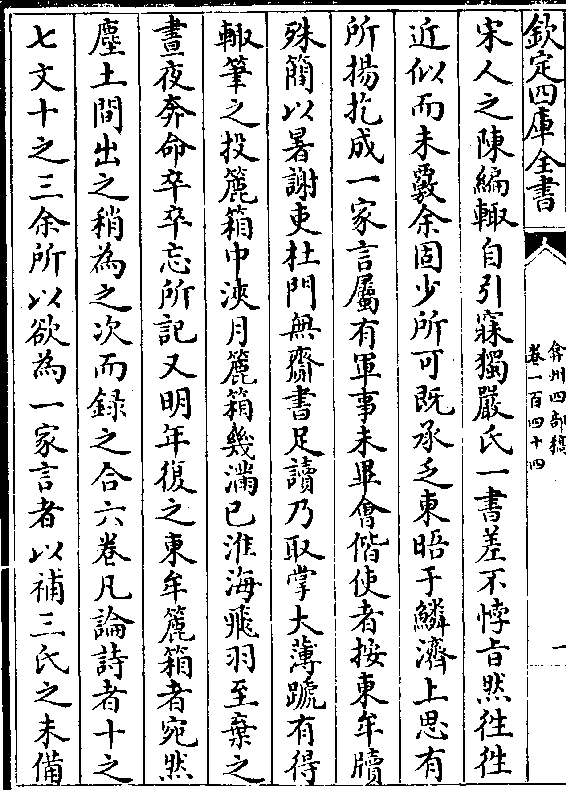 欽定四庫全書
弇州四部稿
卷一百四十四
一
宋人之陳編輙自引寐獨嚴氏一書差不悖㫖然徃徃
近似而未覈余固少所可既承乏東晤于鱗濟上思有
所揚扢成一家言屬有軍事未畢會偕使者按東牟牘
殊簡以暑謝吏杜門無齋書足讀乃取掌大薄蹏有得
輙筆之投簏箱中浹月簏箱幾滿已淮海飛羽至棄之
晝夜奔命卒卒忘所記又明年復之東牟簏箱者宛然
塵土間出之稍為之次而録之合六卷凡論詩者十之
七文十之三余所以欲為一家言者以補三氏之未備